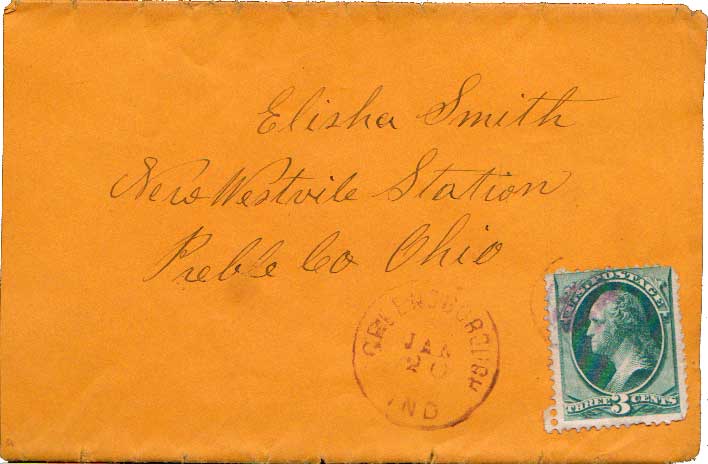 Elisha Smith
New Westvile Station
Preble Co Ohio
GREENSBOROUGH
JAN
20
IND
U.S. POSTAGE
THREE 3 CENTS